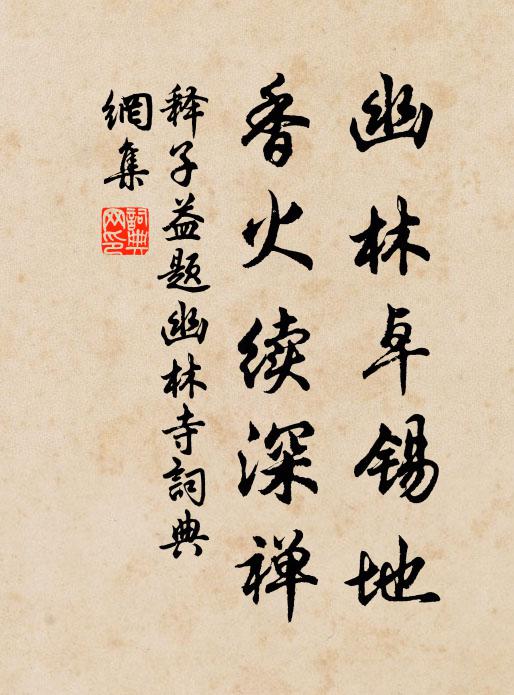 幽林卓锡地
香火续深禅
释子益题幽林寺詞典
網集
詞典
网印